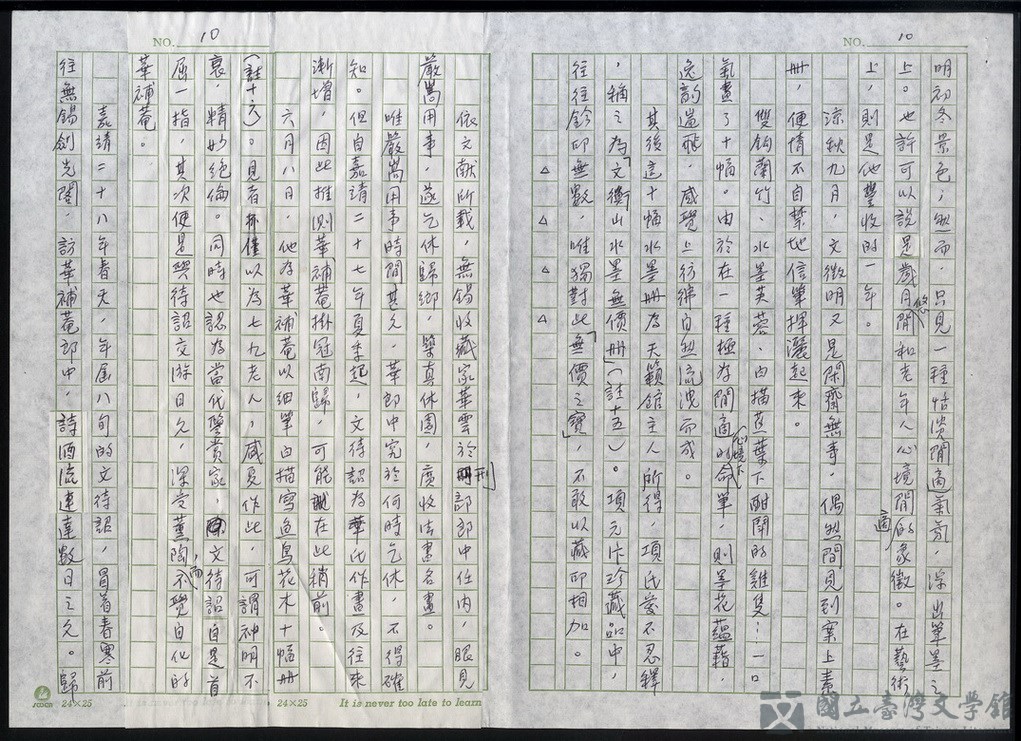 NO. 10
明初冬景色；然而，只見一種恬淡閒適氣氛，浮出筆墨之
上。也許可以說是歲月悠閒和老年人心境閒適的象徵。在藝術
上，則是他豐收的一年。
涼秋九月，文徵明又是閑齋無事，偶然間見到案上素
冊，便情不自禁地信筆揮灑起來。
雙鉤蘭竹、水墨芙蓉、白描蕉葉下酣鬥的雞隻……一口
氣畫了十幅。由於在一種極為閒適的心境下命筆，則筆花蘊藉，
逸韵遄飛，感覺上彷彿自然流洩而成。
其後這十幅水墨冊為天籟館主人所得，項氏愛不忍釋
，稱之為「文衡山水墨無價冊」（註十五）。項元汴珍藏品中，
往往鈐印無數，唯獨對此「無價之寶」，不敢以藏印相加。
△ △ △ △
NO. 10
依文献所載，無錫收藏家華雲於刑部郎中任內，眼見
嚴嵩用事，遂乞休歸鄉，築真休園，廣收法書名畫。
唯嚴嵩用事時間甚久，華郎中究於何時乞休，不得確
知。但自嘉靖二十七年夏季起，文待詔為華氏作畫及往來
漸增，因此推測華補菴掛冠南歸，可能在此稍前。
六月八日，他為華補菴以細筆白描寫魚鳥花木十幅冊
（註十六）。見者僅以為七九老人，盛夏作此，可謂神明不
衰，精妙絕倫。同時也認為當代鑒賞家，文待詔自是首
屈一指，其次便是與待詔交游日久，深受薰陶，而不覺自化的
華補菴。
嘉靖二十八年春天，年屆八旬的文待詔，冒着春寒前
往無錫劍光閣，訪華補菴郎中，詩酒流連達數日之久。歸
24×25
24×25
It is never too late to learn
國立臺灣文學館